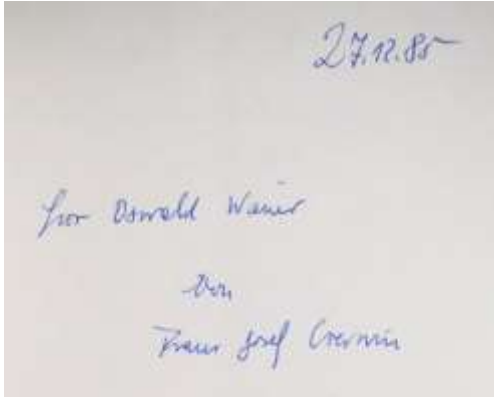 27.12.85
für Oswald Wiener
von
Franz Josef Czernin